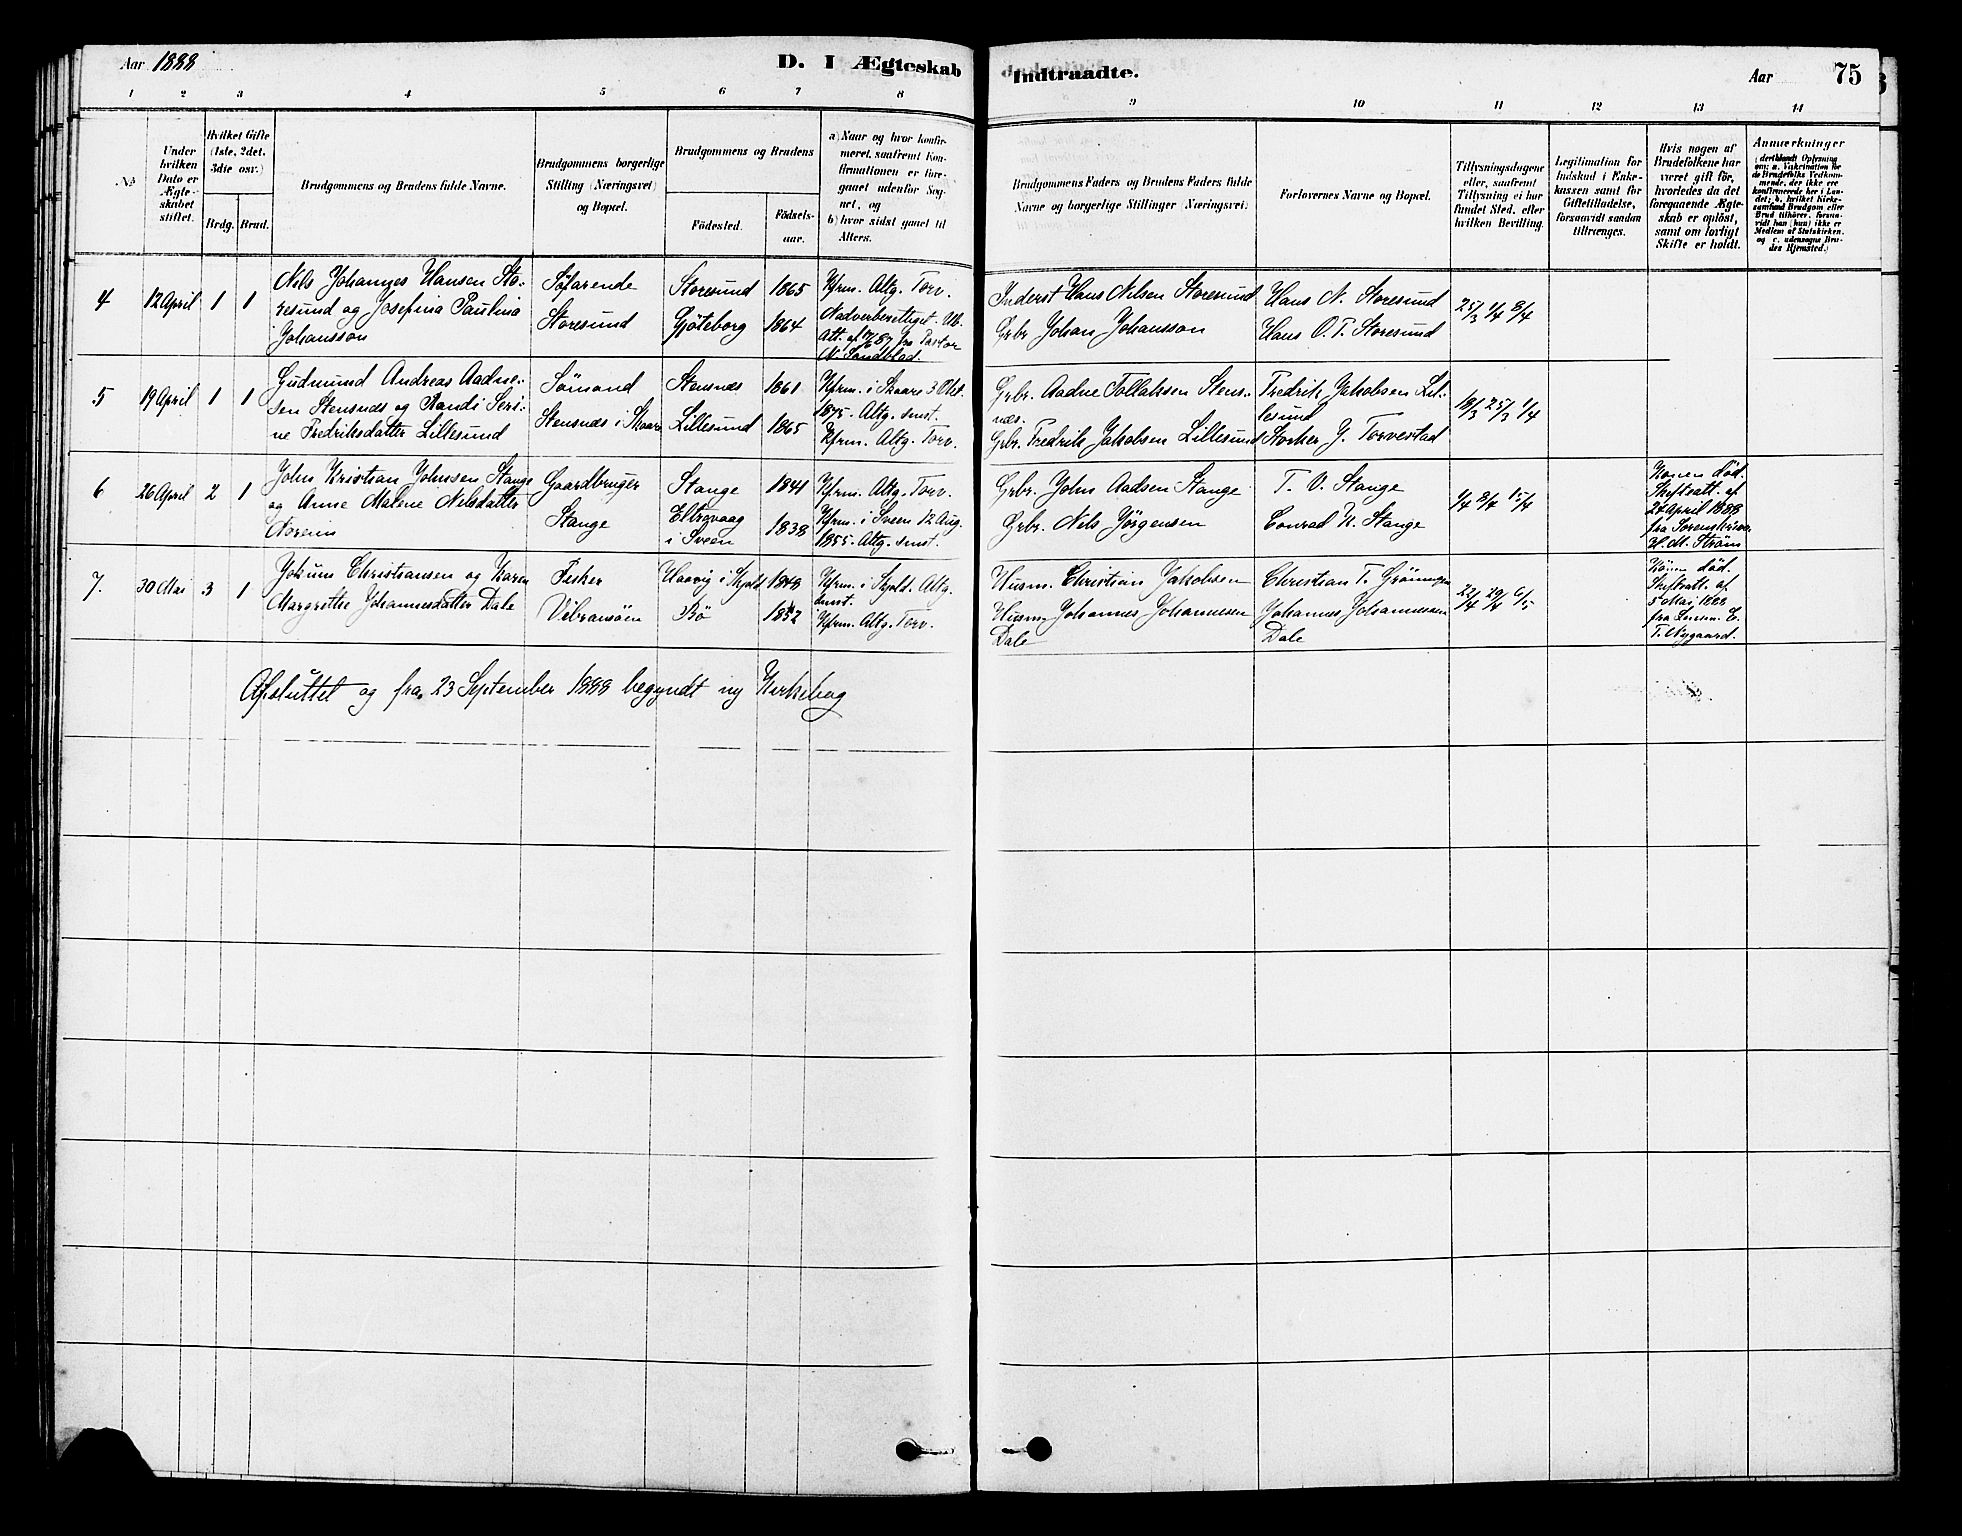 Aar 1888
D. I Ægteskab
Indtraadte.
Aar
75
1 2 3 4 5 6 7 8
9 10 11 12 13 14
No
Under hvilken Dato er Ægteskabet stiftet.
Hvilket Gifte (1ste, 2det, 3die osv.)
Brdg. Brud.
Brudgommens og Brudens fulde Navne.
Brudgommens borgerlige Stilling (Næringsvei) og Bopæl.
Brudgommens og Brudens
Födested.
Födsels-aar.
a) Naar og hvor konfirmeret, saafremt Konfirmationen er foregaaet udenfor Sognet, og
b) hvor sidst gaaet til Alters.
Brudgommens Faders og Brudens Faders fulde Navne og borgerlige Stillinger (Næringsvei).
Forlovernes Navne og Bopæl.
Tillysningsdagene eller, saafremt Tillysning ei har fundet Sted, efter hvilken Bevilling.
Legitimation for Indskud i Enkekassen samt for Giftetilladelse, forsaavidt saadan tiltrænges.
Hvis nogen af Brudefolkene har været gift før, hvorledes da det foregaaende Ægteskab er oplöst, samt om lovligt Skifte er holdt.
Anmærkninger
(deriblandt Oplysning om: a. Vakcination for de Brudefolks Vedkommende, der ikke ere konfirmerede her i Landet; b. hvilket Kirkesamfund Brudgom eller Brud tilhörer, forsaavidt han (hun) ikke er Medlem af Statskirken, og c. udensogns Brudes Hjemsted.)
4 12 April 1 1
Nils Johannes Hansen Sto-
resund og Josefina Paulina
Johansson
Søfarende
Storesund
Storesund 1865
Gjøteborg 1864
Kfrm. Altg. Torv.
Nadverberettiget. Ub.
Att. af fra Pastor
N. Sandblad.
Inderst Hans Nilsen Storesund
Grbr. Johan Johansson
Hans N. Storesund
Hans O. T. Storesund
25/3 1/4 8/4
5 19 April 1 1
Gudmund Andreas Aadne-
sen Stensnes og Randi Seri-
ne Fredriksdatter Lillesund
Sømand
Stensnæs i Skaare
Stensnæs 1861
Lillesund 1865
Kfrm. i Skaare 3 Okt.
1875. Altg. smst.
Kfrm. Altg. Torv.
Grbr. Aadne Tollaksen Stens-
næs.
Grbr. Fredrik Jakobsen Lillesund
Fredrik Jakobsen Lil-
lesund
Storker J. Torvestad
18/3 25/3 1/4
6 26 April 2 1
John Kristian Johnsen Stange
og Anne Malene Nilsdatter
Noreim
Gaardbruger
Stange
Stange 1841
Eltrevaag
i Sveen 1838
Kfrm. Altg. Torv.
Kfrm. i Sveen 12 Aug.
1855. Altg. smst.
Grbr. John Aadsen Stange
Grbr. Nils Jörgensen
T. V. Stange
Conrad K. Stange
1/4 8/4 15/4
Konen død.
Skifteatt. af
24 April 1888
fra Sorenskriver
H. M. Strøm
7. 30 Mai 3 1
Jokum Christiansen og Karen
Margrethe Johannesdatter Dale
Fisker
Vibransöen
Haavig i Skjold 1848
Bø
Kfrm. i Skjold. Altg.
smst.
Kfrm. Altg. Torv.
Husm. Christian Jakobsen
Husm. Johannes Johannesen
Dale
Christian T. Grønningen
Johannes Johannessen
Dale
22/4 29/4 6/5
Konen død.
Skifteatt. af
5 Mai 1888
fra Lensm. E.
T. Nygaard.
Afsluttet og fra 23 September 1888 begyndt ny Kirkebog